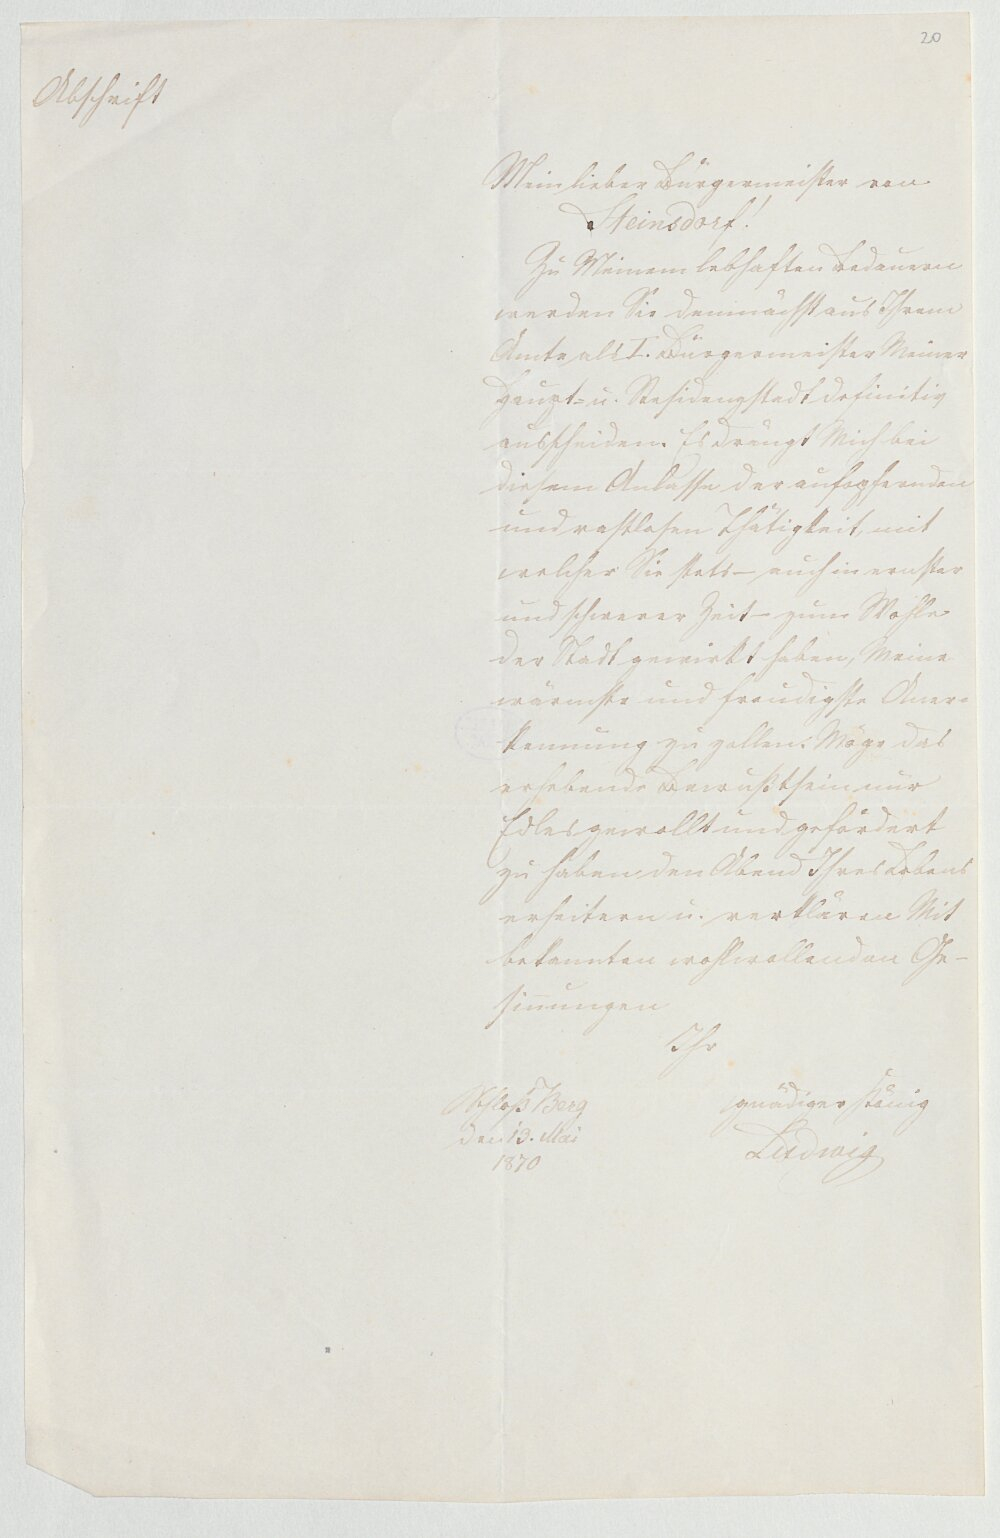 20
Abschrift
Mein lieber Bürgermeister von
Steinsdorf!
Zu Meinem lebhaften Bedauern
werden Sie demnächst aus Ihrem
Amte als I. Bürgermeister Meiner
Haupt- u. Residenzstadt definitiv
ausscheiden. Es drängt Mich bei
diesem Anlasse der aufopfernden
und rastlosen Thätigkeit, mit
welcher Sie stets – auch in ernster
und schwerer Zeit – zum Wohle
der Stadt gewirkt haben, Meine
wärmste und freudigste Aner-
kennung zu zollen. Möge das
erhebende Bewußtsein nur
Edles gewollt und gefördert
zu haben den Abend Ihres Lebens
erheitern u. verklären Mit
bekannten wohlwollenden Ge-
sinnungen
Ihr
gnädiger König
Ludwig
Schloß Berg
den 13. Mai
1870